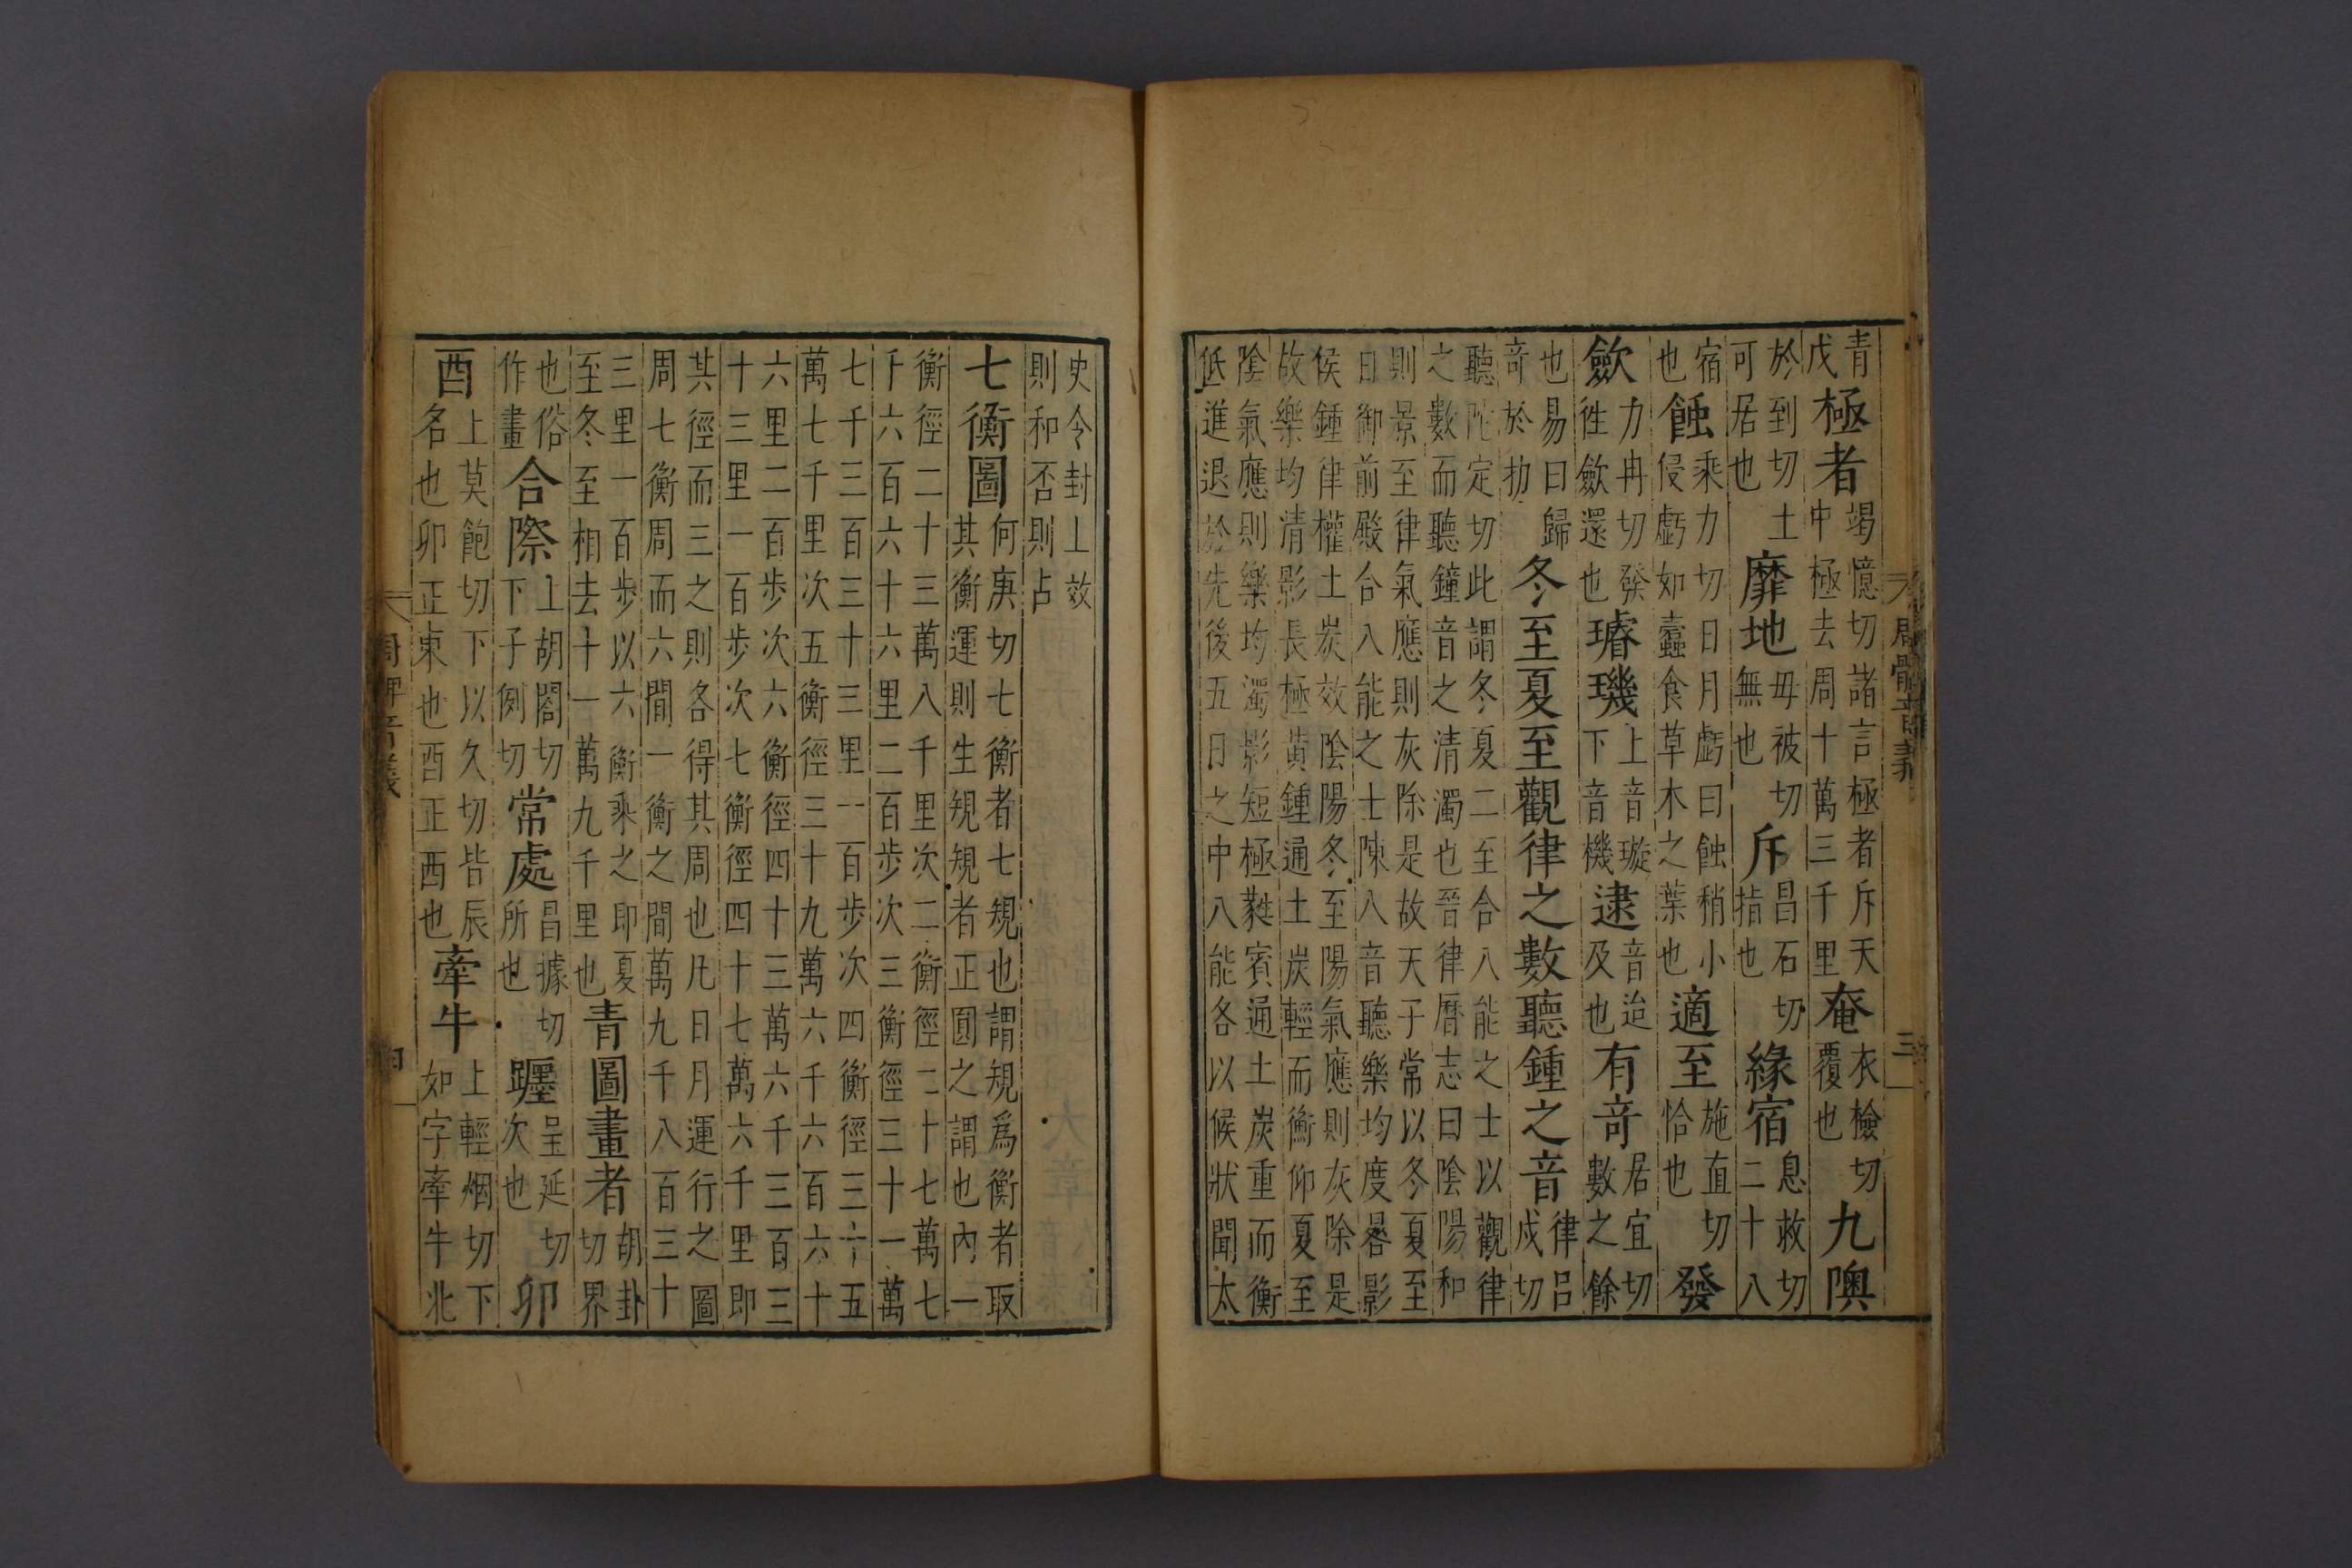 青戊極者竭憶切諸言極者斥天中極去周十萬三千里奄衣檢切覆也九隩
於到切土可居也靡地毋被切無也斥昌石切指也緣宿息救切二十八
宿也蝕乘力切日月虧曰蝕稍小侵虧如蠧食草木之葉也適至施直切恰也發
斂力冉切發徃斂還也璿璣上音璇下音機逮音迨及也有竒居宜切數之餘
也易曰歸竒於扐冬至夏至觀律之數聽鍾之音律吕戍切
聽陀定切此謂冬夏二至合八能之士以觀律之數而聽鐘音之清濁也晉律曆志曰陰陽和
則景至律氣應則灰除是故天子常以冬夏至日御前殿合八能之士陳八音聽樂均度晷影
候鍾律權土炭效陰陽冬至陽氣應則灰除是故樂均清影長極黄鍾通土炭輕而衡仰夏至
陰氣應則樂均濁影短極蕤賓通土炭重而衡低進退於先後五日之中八能各以候狀聞太
周髀音義 三
史令封上效則和否則占
七衡圖何庚切七衡者七規也謂規爲衡者取其衡運則生規規者正圓之謂也内一
衡徑二十三萬八千里次二衡徑二十七萬七千六百六十六里二百步次三衡徑三十一萬
七千三百三十三里一百步次四衡徑三十五萬七千里次五衡徑三十九萬六千六百六十
六里二百步次六衡徑四十三萬六千三百三十三里一百步次七衡徑四十七萬六千里即
其徑而三之則各得其周也凡日月運行之圖周七衡周而六間一衡之間萬九千八百三十
三里一百步以六衡乘之即夏至冬至相去十一萬九千里也青圖畫者胡卦切界
也俗作畫合際上胡閤切下子例切常處昌據切所也躔呈延切次也卯
酉上莫飽切下以久切皆辰名也卯正東也酉正西也牽牛上輕烟切下如字牽牛北
周髀音義 四